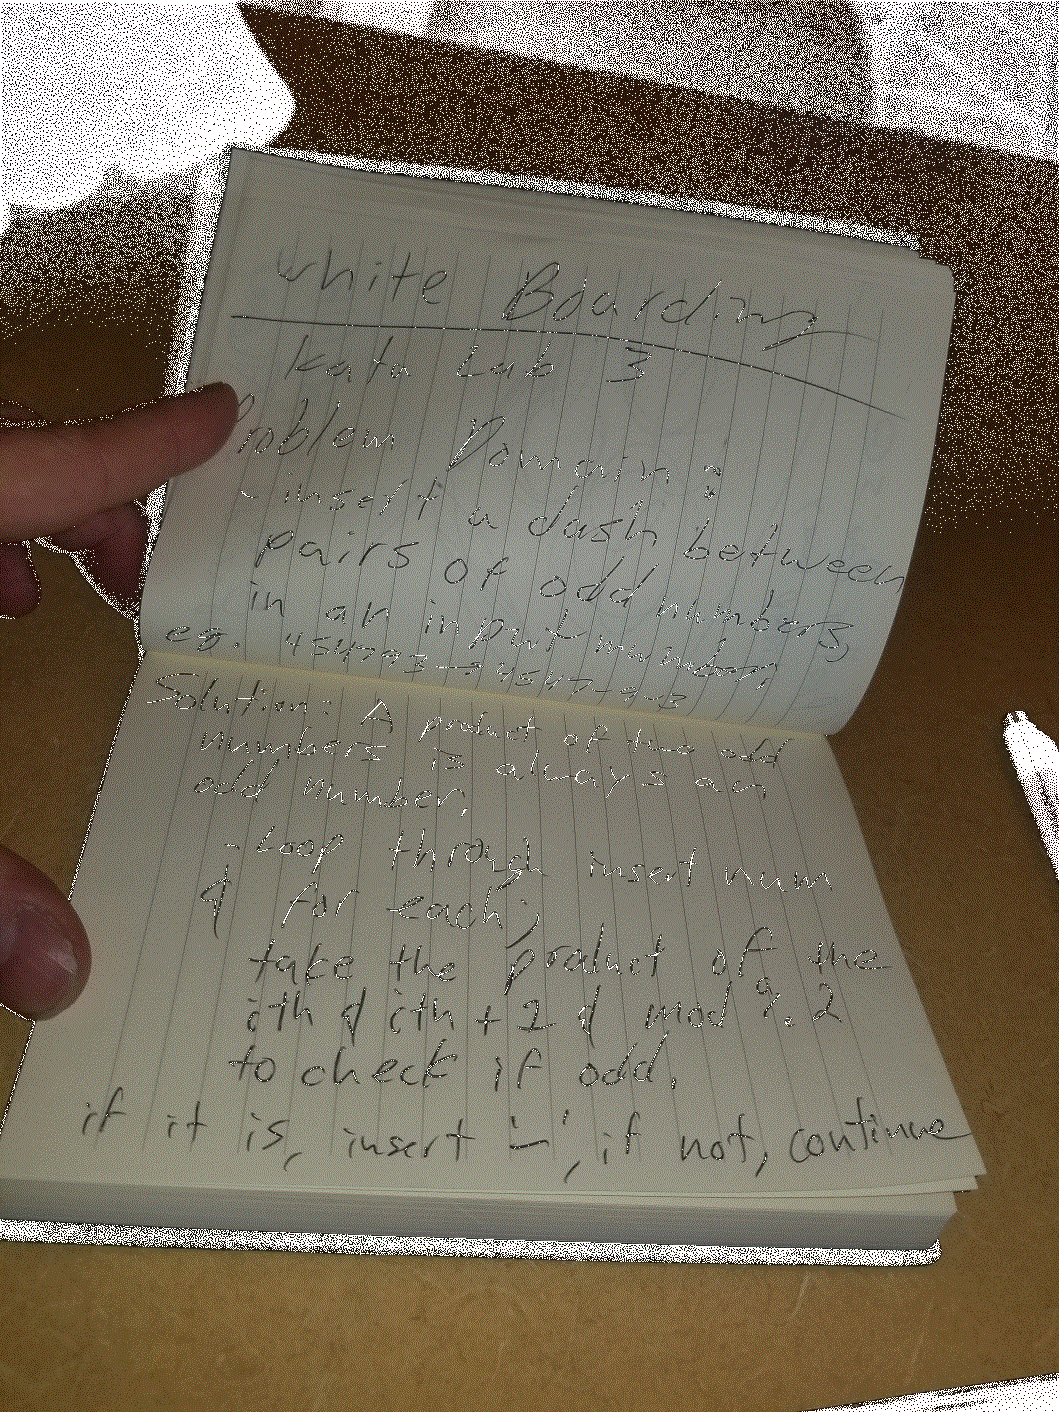 White Boarding
Kata Lab 3
Problem Domain:
- insert a dash between
pairs of odd numbers
in an input number,
eg. 454793 → 4547-9-3
Solution: A product of two odd
numbers is always an
odd number.
- Loop through insert num
& for each;
take the product of the
ith & ith + 2 & mod %. 2
to check if odd.
if it is, insert '-', if not, continue